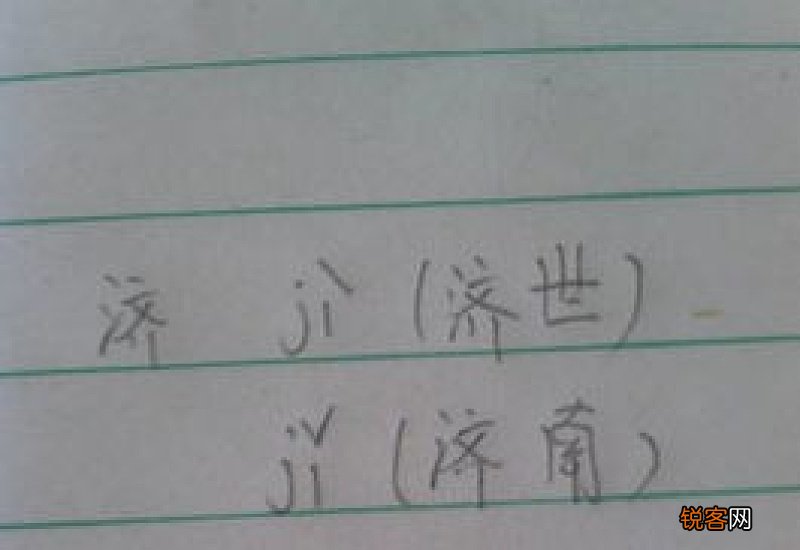 济 jì (济世)
jǐ (济南)
锐客网